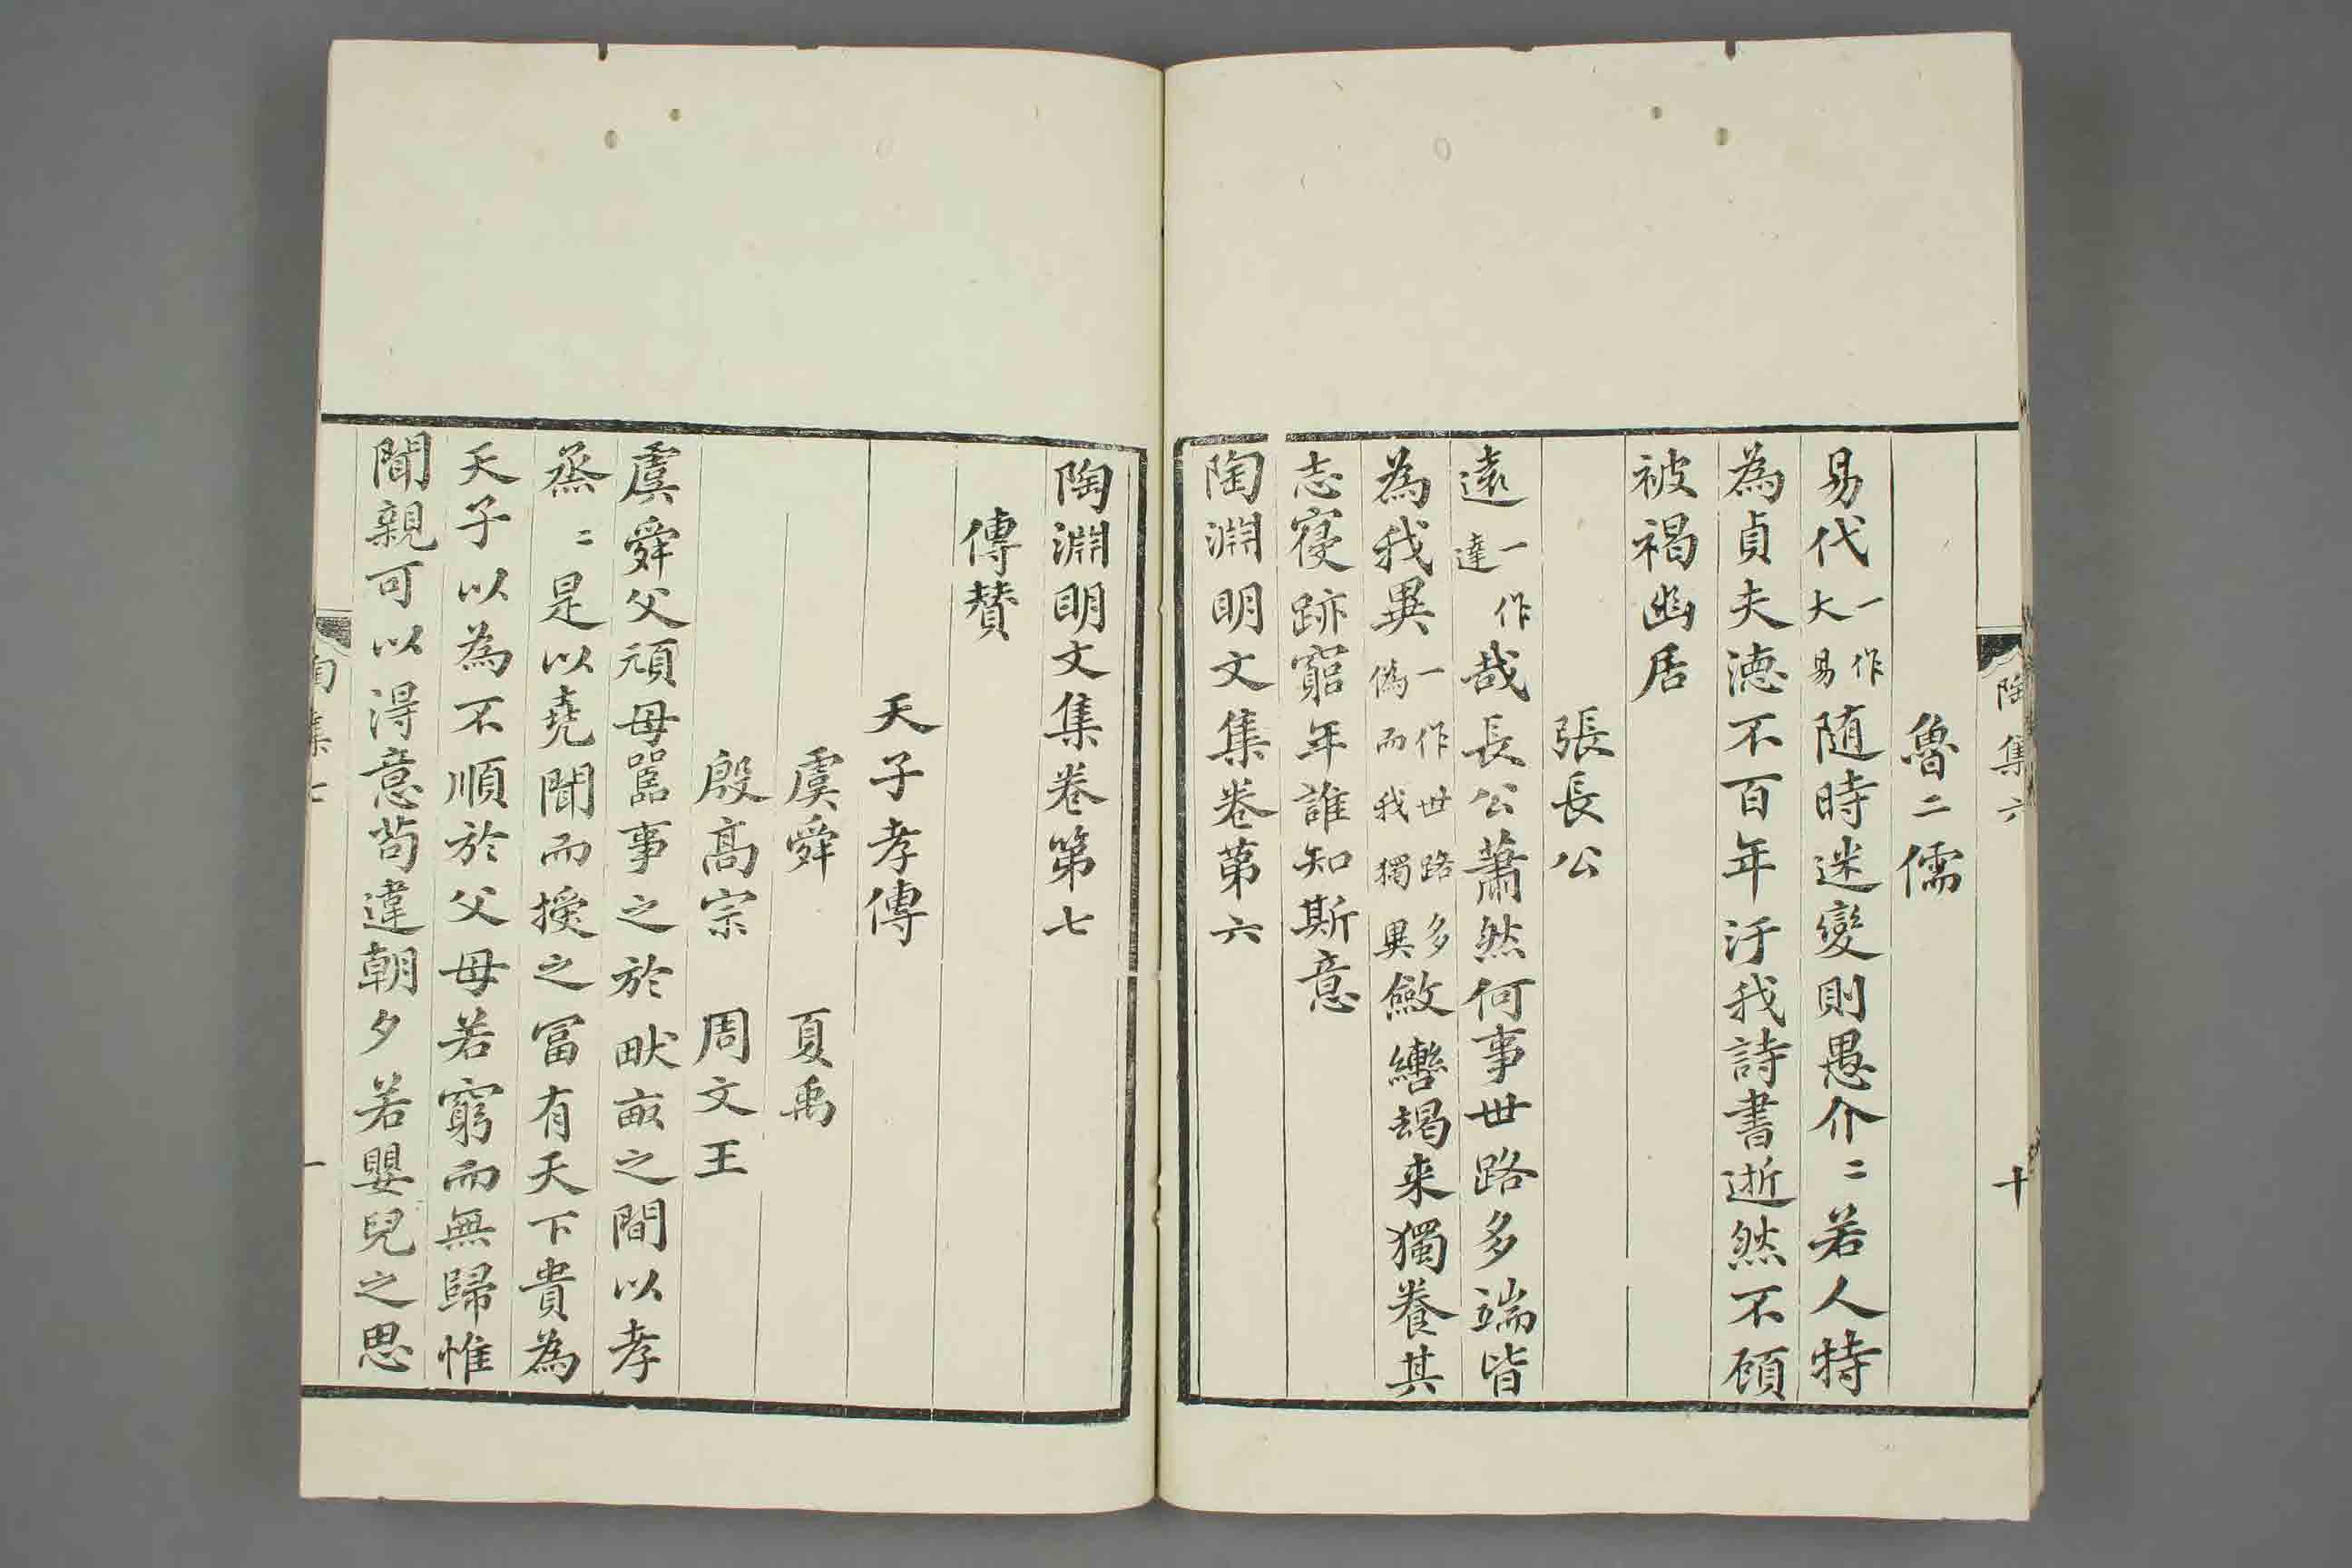 陶集六
十
魯二儒
易代一作大易随時迷變則愚介〻若人特
為貞夫徳不百年汙我詩書逝然不顧
被褐幽居
張長公
遠一作達哉長公蕭然何事世路多端皆
為我異一作世路多偽而我獨異斂轡朅来獨養其
志寑跡窮年誰知斯意
陶淵明文集卷第六
陶淵明文集卷第七
傳贊
天子孝傳
虞舜 夏禹
殷髙宗 周文王
虞舜父頑母嚚事之於畎畝之間以孝
烝〻是以堯聞而授之冨有天下貴為
天子以為不順於父母若窮而無歸惟
聞親可以得意苟違朝夕若嬰兒之思
陶集七
一